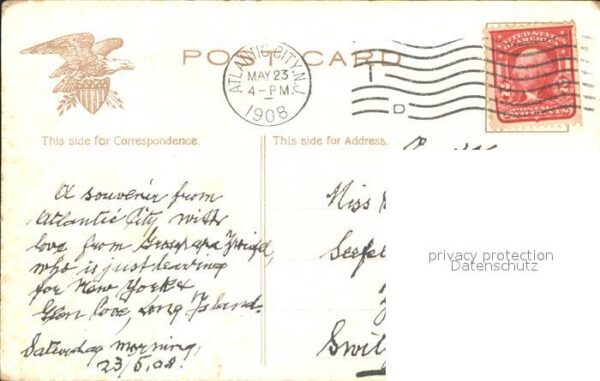 POST CARD
ATLANTIC CITY, N.J.
MAY 23
4-PM.
1908
D
UNITED STATES
OF AMERICA
This side for Correspondence.
This side for Address.
A souvenir from
Atlantic City with
love from Grosspapa
who is just leaving
for New York &
Glen Cove, Long Island.
Saturday morning,
23/5.08.
Miss
Seefel
Swit
privacy protection
Datenschutz